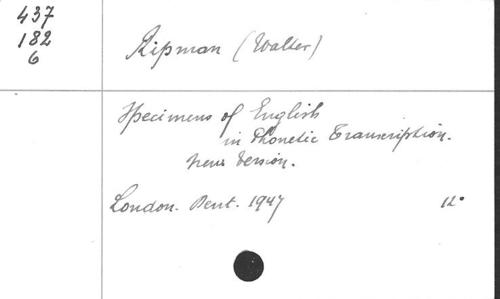 437
182
6
Ripman (Walter)
Specimens of English
in Phonetic Transcription.
New Version.
London. Dent. 1947 12°